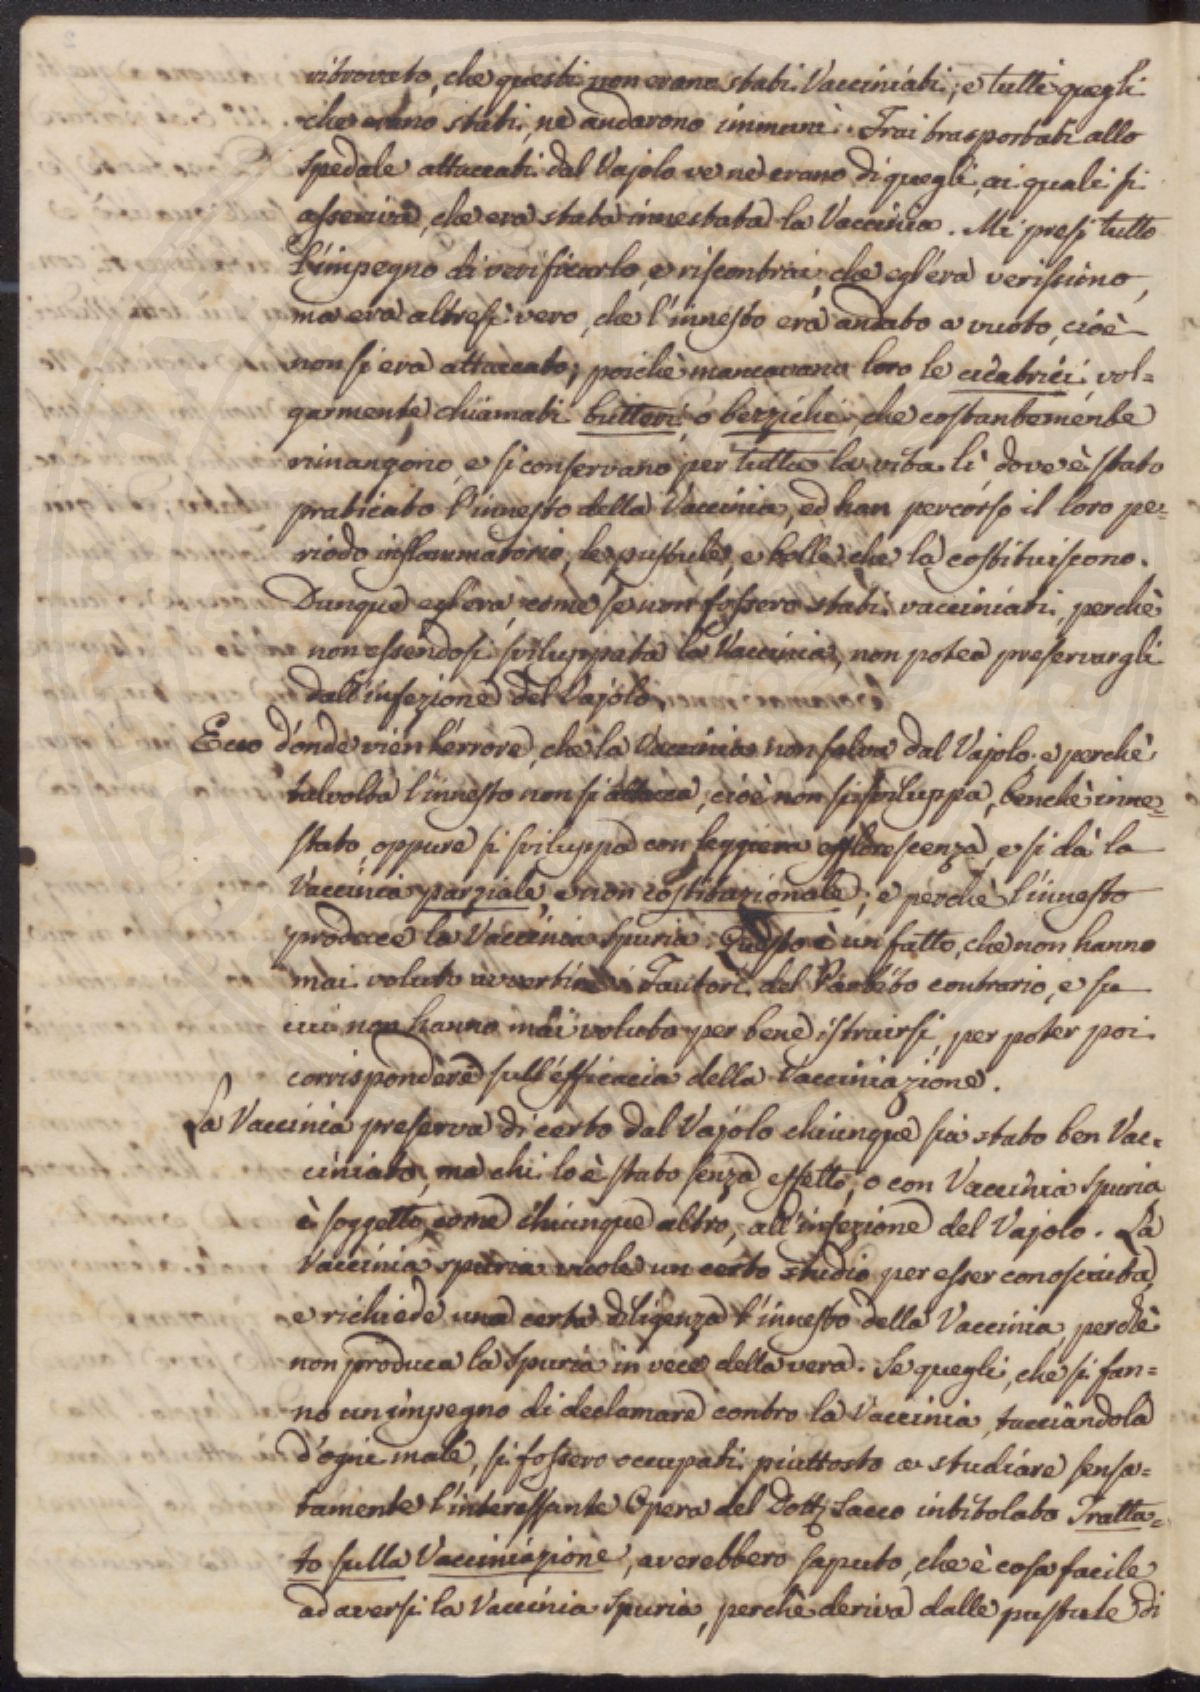 ritrovato, che questi non erano stati Vacciniati; e tutti quegli
che erano stati, ne andarono immuni. Frai trasportati allo
Spedale attaccati dal Vajolo ve ne erano di quegli, ai quali si
asseriva, che era stata innestata la Vaccinia. Mi presi tutto
l'impegno di verificarlo, e riscontrai, che egl'era verissimo,
ma era altresì vero, che l'innesto era andato a vuoto, cioè
non si era attaccato; poichè mancavano loro le cicatrici, vol=
garmente chiamati butteri, o berzichi che costantemente
rimangono, e si conservano per tutta la vita lì dove è stato
praticato l'innesto della Vaccinia, ed han percorso il loro pe=
riodo inflammatorio, le pustule, e bolle che la costituiscono.
Dunque egl'era, come se non fossero stati vacciniati, perchè
non essendosi sviluppata la Vaccinia, non potea preservargli
dall'infezione del Vajolo.
Ecco d'onde vien l'errore, che la Vaccinia non salva dal Vajolo; e perchè
talvolta l'innesto non si attacca, cioè non si sviluppa, benchè inne=
stato, oppure si sviluppa con leggiera efflorescenza, e si dà la
Vaccinia parziale, e non costituzionale; e perchè l'innesto
produce la Vaccinia Spuria. Questo è un fatto, che non hanno
mai voluto avvertire i Fautori del Partito contrario, e su
cui non hanno mai voluto per bene istruirsi, per poter poi
corrispondere sull'efficacia della Vacciniazione.
La Vaccinia preserva di certo dal Vajolo chiunque sia stato ben Vac=
ciniato, ma chi lo è stato senza effetto, o con Vaccinia Spuria
è soggetto, come chiunque altro, all'infezione del Vajolo. La
Vaccinia spuria vuole un certo studio per esser conosciuta,
e richiede una certa diligenza l'innesto della Vaccinia, perchè
non produca la Spuria in vece della vera. Se quegli, che si fan=
no un impegno di declamare contro la Vaccinia, tacciandola
d'ogni male, si fossero occupati piuttosto a studiare sensa=
tamente l'interessante Opera del Dott. Sacco intitolato Tratta=
to sulla Vacciniazione, averebbero saputo, che è cosa facile
ad aversi la Vaccinia Spuria, perchè deriva dalle pustule di